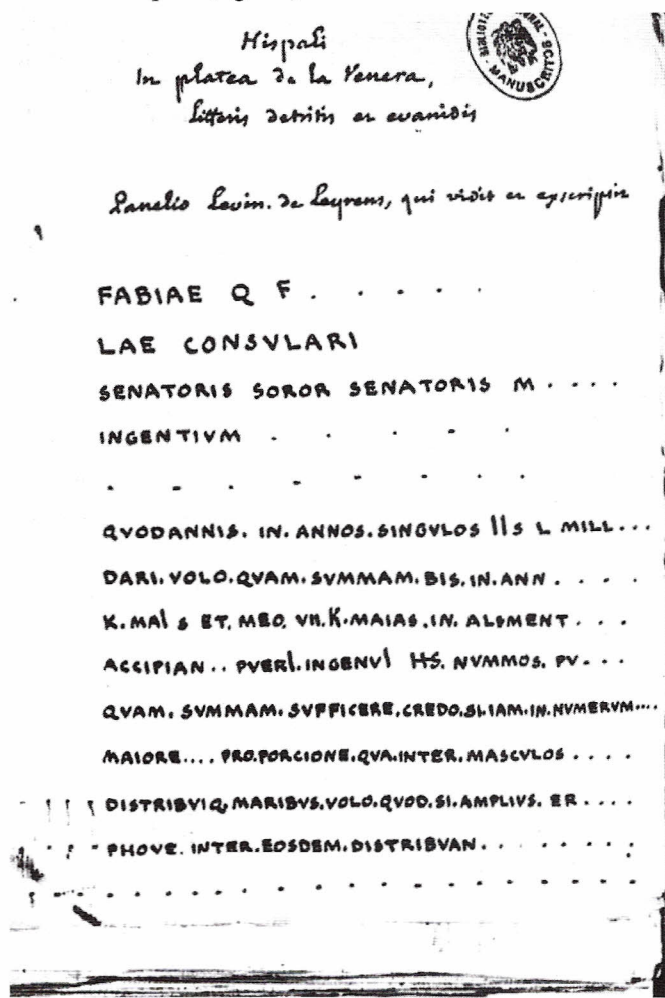 Hispali
In platea de la Venera,
litteris detritis et evanidis
BIBLIOTE NAL - MANUSCRITOS
Levin. de Leyrens, qui vidit et exscripsit
FABIAE Q F . . . . .
LAE CONSVLARI
SENATORIS SOROR SENATORIS M . . . .
INGENTIVM . . . . .
. . . . . . . .
QVODANNIS. IN. ANNOS. SINGVLOS IIS L MILL...
DARI. VOLO. QVAM. SVMMAM. BIS. IN. ANN . . . .
K. MAI S ET. MEO. VII. K. MAIAS. IN. ALSMENT . . .
ACCIPIAN .. PVERI. INGENVI HS. NVMMOS. PV. . .
QVAM. SVMMAM. SVFFICERE. CREDO. SI. IAM. IN. NVMERVM....
MAIORE.... PRO. PORCIONE. QVA. INTER. MASCVLOS . . . .
DISTRIBVIQ. MARIBVS. VOLO. QVOD. SI. AMPLIVS. ER . . . .
PHOVE. INTER. EOSDEM. DISTRIBVAN. . . . . . . .
. . . . . . . . . . . . . . .